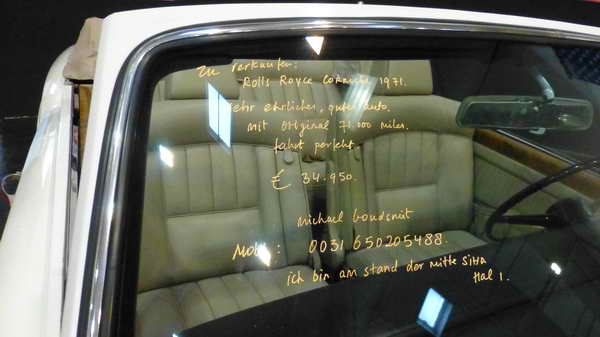 zu verkaufen:
Rolls Royce Corniche 1971.
sehr ehrliches, gutes auto.
mit original 71.000 miles.
fahrt perfekt.
€ 34.950.
michael
Mobil: 0031 650205488.
ich bin am stand der mitte SIHA
Hal 1.